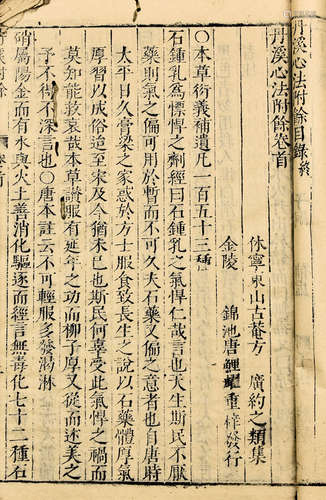 丹溪心法附餘目錄終
丹溪心法附餘卷首
休寧東山古菴方 廣約之類集
金陵 錦池唐鯉耀重梓發行
○本草衍義補遺凡一百五十三種
石鍾乳為慓悍之劑經曰石鍾乳之氣悍仁哉言也天生斯民不厭
藥則氣之偏可用於暫而不可久夫石藥又偏之意者也自唐時
太平日久膏梁之家惑於方士服食致長生之說以石藥體厚氣
厚習以成俗迨至宋及今猶未已也斯民何辜受此氣悍之禍而
莫知能救哀哉本草讚服有延年之功而柳子厚又從而述美之
予不得不深言也○唐本註云不可輕服多發渴淋
硝屬陽金而有水與火土善消化驅逐而經言無毒化七十二種石